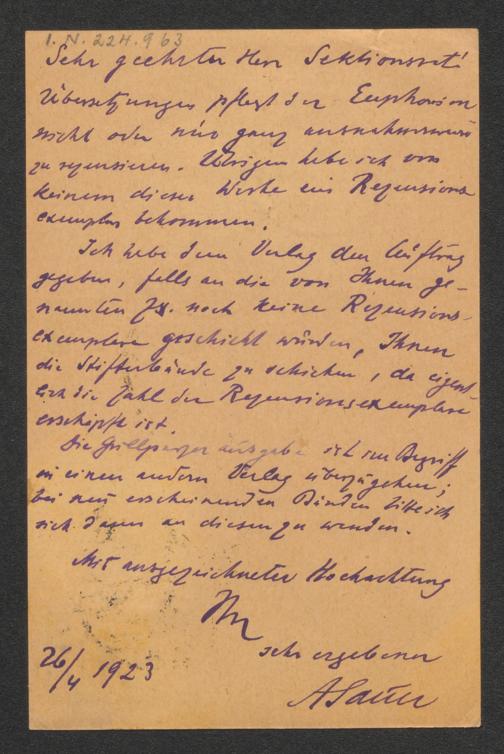 I. N. 224.963
Sehr geehrter Herr Sektionsrat!
Übersetzungen pflegt der Euphorion
nicht oder nur ganz ausnahmsweise
zu rezensieren. Übrigens habe ich von
keinem dieser Werke ein Rezensions-
exemplar bekommen.
Ich habe dem Verlag den Auftrag
gegeben, falls an die von Ihnen ge-
nannten Zs. noch keine Rezensions-
exemplare geschickt würden, Ihnen
die Stifterbände zu schicken, da eigent-
lich die Zahl der Rezensionsexemplare
erschöpft ist.
Die Grillparzerausgabe ist im Begriff
in einen andern Verlag überzugehen;
bei neu erscheinenden Bänden bitte ich
sich dann an diesen zu wenden.
Mit ausgezeichneter Hochachtung
Ihr
sehr ergebener
26/4 1923
ASauer